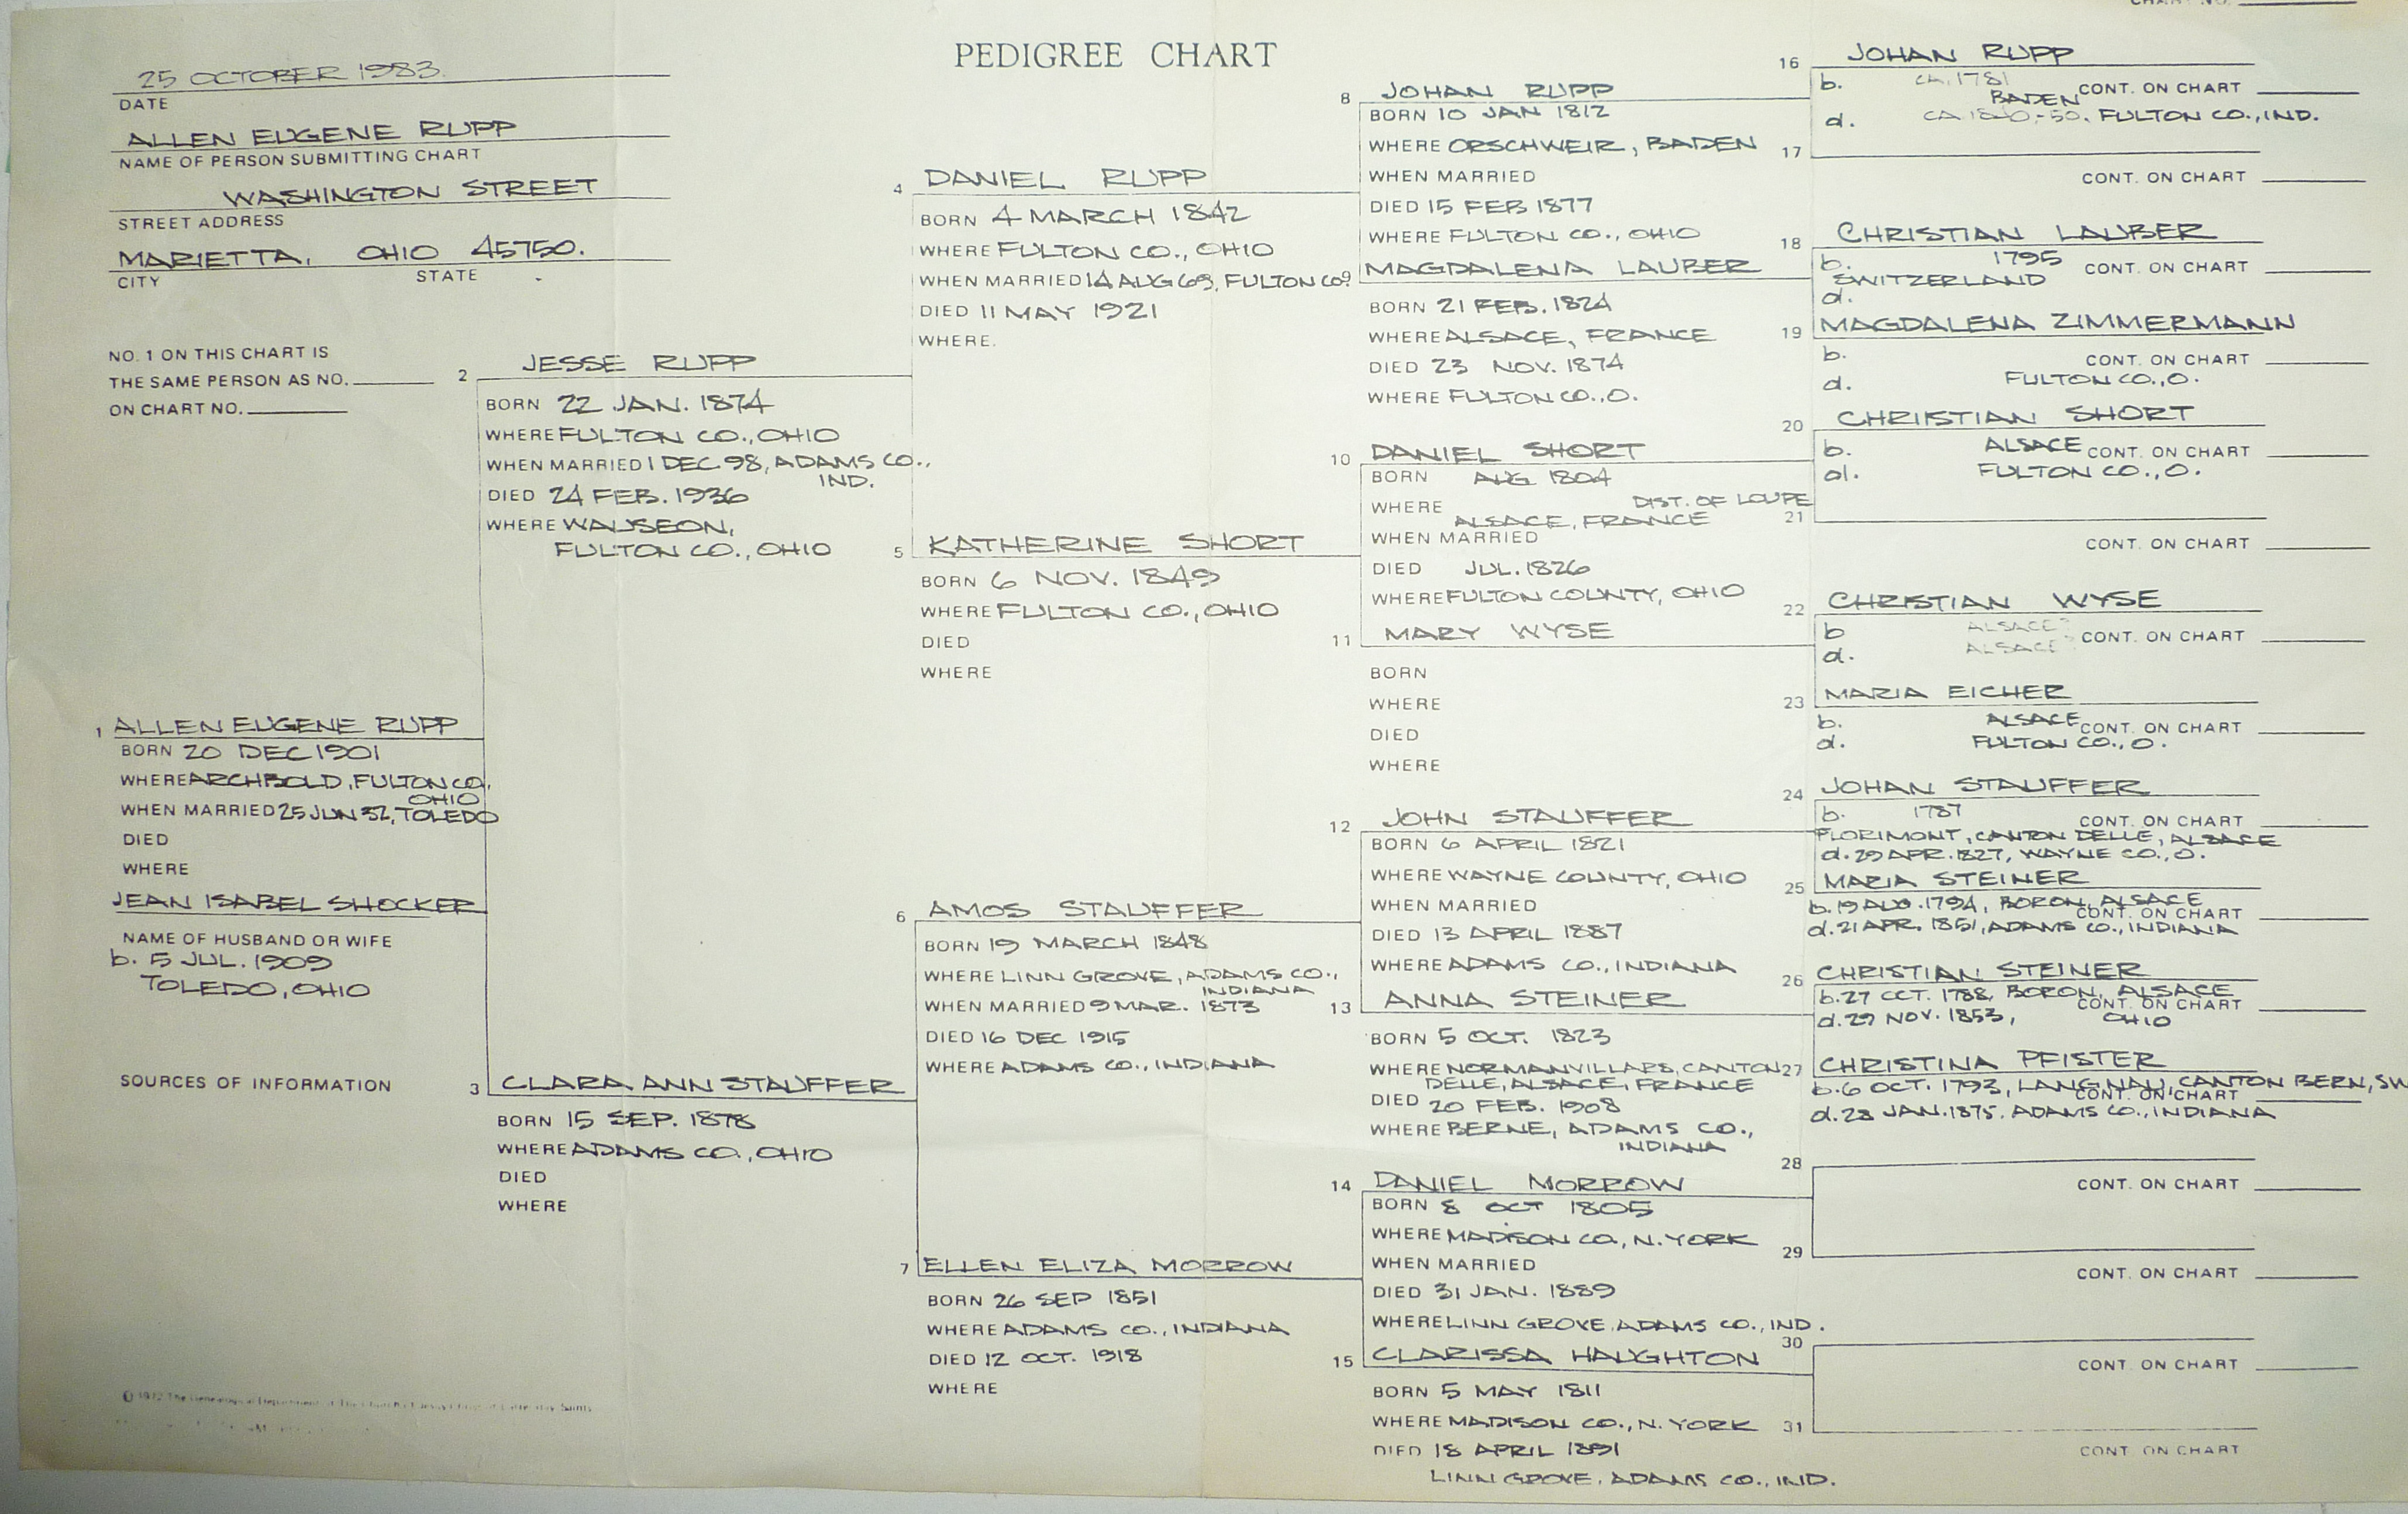 CHART NO.
PEDIGREE CHART
25 OCTOBER 1983.
DATE
ALLEN EUGENE RUPP
NAME OF PERSON SUBMITTING CHART
WASHINGTON STREET
STREET ADDRESS
MARIETTA, OHIO 45750.
CITY STATE
NO. 1 ON THIS CHART IS
THE SAME PERSON AS NO.
ON CHART NO.
1 ALLEN EUGENE RUPP
BORN 20 DEC 1901
WHERE ARCHBOLD, FULTON CO.,
OHIO
WHEN MARRIED 25 JUN 32, TOLEDO
DIED
WHERE
JEAN ISABEL SHOCKER
NAME OF HUSBAND OR WIFE
b. 5 JUL. 1909
TOLEDO, OHIO
SOURCES OF INFORMATION
© 1972 The Genealogical Department of The Church of Jesus Christ of Latter-day Saints
2 JESSE RUPP
BORN 22 JAN. 1874
WHERE FULTON CO., OHIO
WHEN MARRIED 1 DEC 98, ADAMS CO.,
IND.
DIED 24 FEB. 1936
WHERE WAUSEON,
FULTON CO., OHIO
3 CLARA ANN STAUFFER
BORN 15 SEP. 1878
WHERE ADAMS CO., OHIO
DIED
WHERE
4 DANIEL RUPP
BORN 4 MARCH 1842
WHERE FULTON CO., OHIO
WHEN MARRIED 14 AUG 69, FULTON CO
DIED 11 MAY 1921
WHERE.
5 KATHERINE SHORT
BORN 6 NOV. 1849
WHERE FULTON CO., OHIO
DIED
WHERE
6 AMOS STAUFFER
BORN 19 MARCH 1848
WHERE LINN GROVE, ADAMS CO.,
INDIANA
WHEN MARRIED 9 MAR. 1873
DIED 16 DEC 1915
WHERE ADAMS CO., INDIANA
7 ELLEN ELIZA MORROW
BORN 26 SEP 1851
WHERE ADAMS CO., INDIANA
DIED 12 OCT. 1918
WHERE
8 JOHAN RUPP
BORN 10 JAN 1812
WHERE ORSCHWEIR, BADEN
WHEN MARRIED
DIED 15 FEB 1877
WHERE FULTON CO., OHIO
9 MAGDALENA LAUBER
BORN 21 FEB. 1824
WHERE ALSACE, FRANCE
DIED 23 NOV. 1874
WHERE FULTON CO., O.
10 DANIEL SHORT
BORN AUG 1804
WHERE DIST. OF LOUPE
ALSACE, FRANCE
WHEN MARRIED
DIED JUL. 1826
WHERE FULTON COUNTY, OHIO
11 MARY WYSE
BORN
WHERE
DIED
WHERE
12 JOHN STAUFFER
BORN 6 APRIL 1821
WHERE WAYNE COUNTY, OHIO
WHEN MARRIED
DIED 13 APRIL 1887
WHERE ADAMS CO., INDIANA
13 ANNA STEINER
BORN 5 OCT. 1823
WHERE NORMANVILLARS, CANTON
DELLE, ALSACE, FRANCE
DIED 20 FEB. 1908
WHERE BERNE, ADAMS CO.,
INDIANA
14 DANIEL MORROW
BORN 8 OCT 1805
WHERE MADISON CO., N. YORK
WHEN MARRIED
DIED 31 JAN. 1889
WHERE LINN GROVE, ADAMS CO., IND.
15 CLARISSA HAUGHTON
BORN 5 MAY 1811
WHERE MADISON CO., N. YORK
DIED 18 APRIL 1891
LINN GROVE, ADAMS CO., IND.
16 JOHAN RUPP
b. CA. 1781 CONT. ON CHART
BADEN
d. CA 1840-50, FULTON CO., IND.
17
CONT. ON CHART
18 CHRISTIAN LAUBER
b. 1795 CONT. ON CHART
SWITZERLAND
d.
19 MAGDALENA ZIMMERMANN
b. CONT. ON CHART
d. FULTON CO., O.
20 CHRIITIAN SHORT
b. ALSACE CONT. ON CHART
d. FULTON CO., O.
21
CONT. ON CHART
22 CHRISTIAN WYSE
b ALSACE? CONT. ON CHART
d. ALSACE?
23 MARIA EICHER
b. ALSACE CONT. ON CHART
d. FULTON CO., O.
24 JOHAN STAUFFER
b. 1787 CONT. ON CHART
FLORIMONT, CANTON DELLE, ALSACE
d. 29 APR. 1827, WAYNE CO., O.
25 MARIA STEINER
b. 19 AUG. 1794, BORON, ALSACE
CONT. ON CHART
d. 21 APR. 1851, ADAMS CO., INDIANA
26 CHRISTIAN STEINER
b. 27 OCT. 1788, BORON, ALSACE
CONT. ON CHART
d. 29 NOV. 1853, OHIO
27 CHRISTINA PFISTER
b. 6 OCT. 1793, LANGNAU, CANTON BERN, SW
CONT. ON CHART
d. 28 JAN. 1875, ADAMS CO., INDIANA
28
CONT. ON CHART
29
CONT. ON CHART
30
CONT. ON CHART
31
CONT. ON CHART